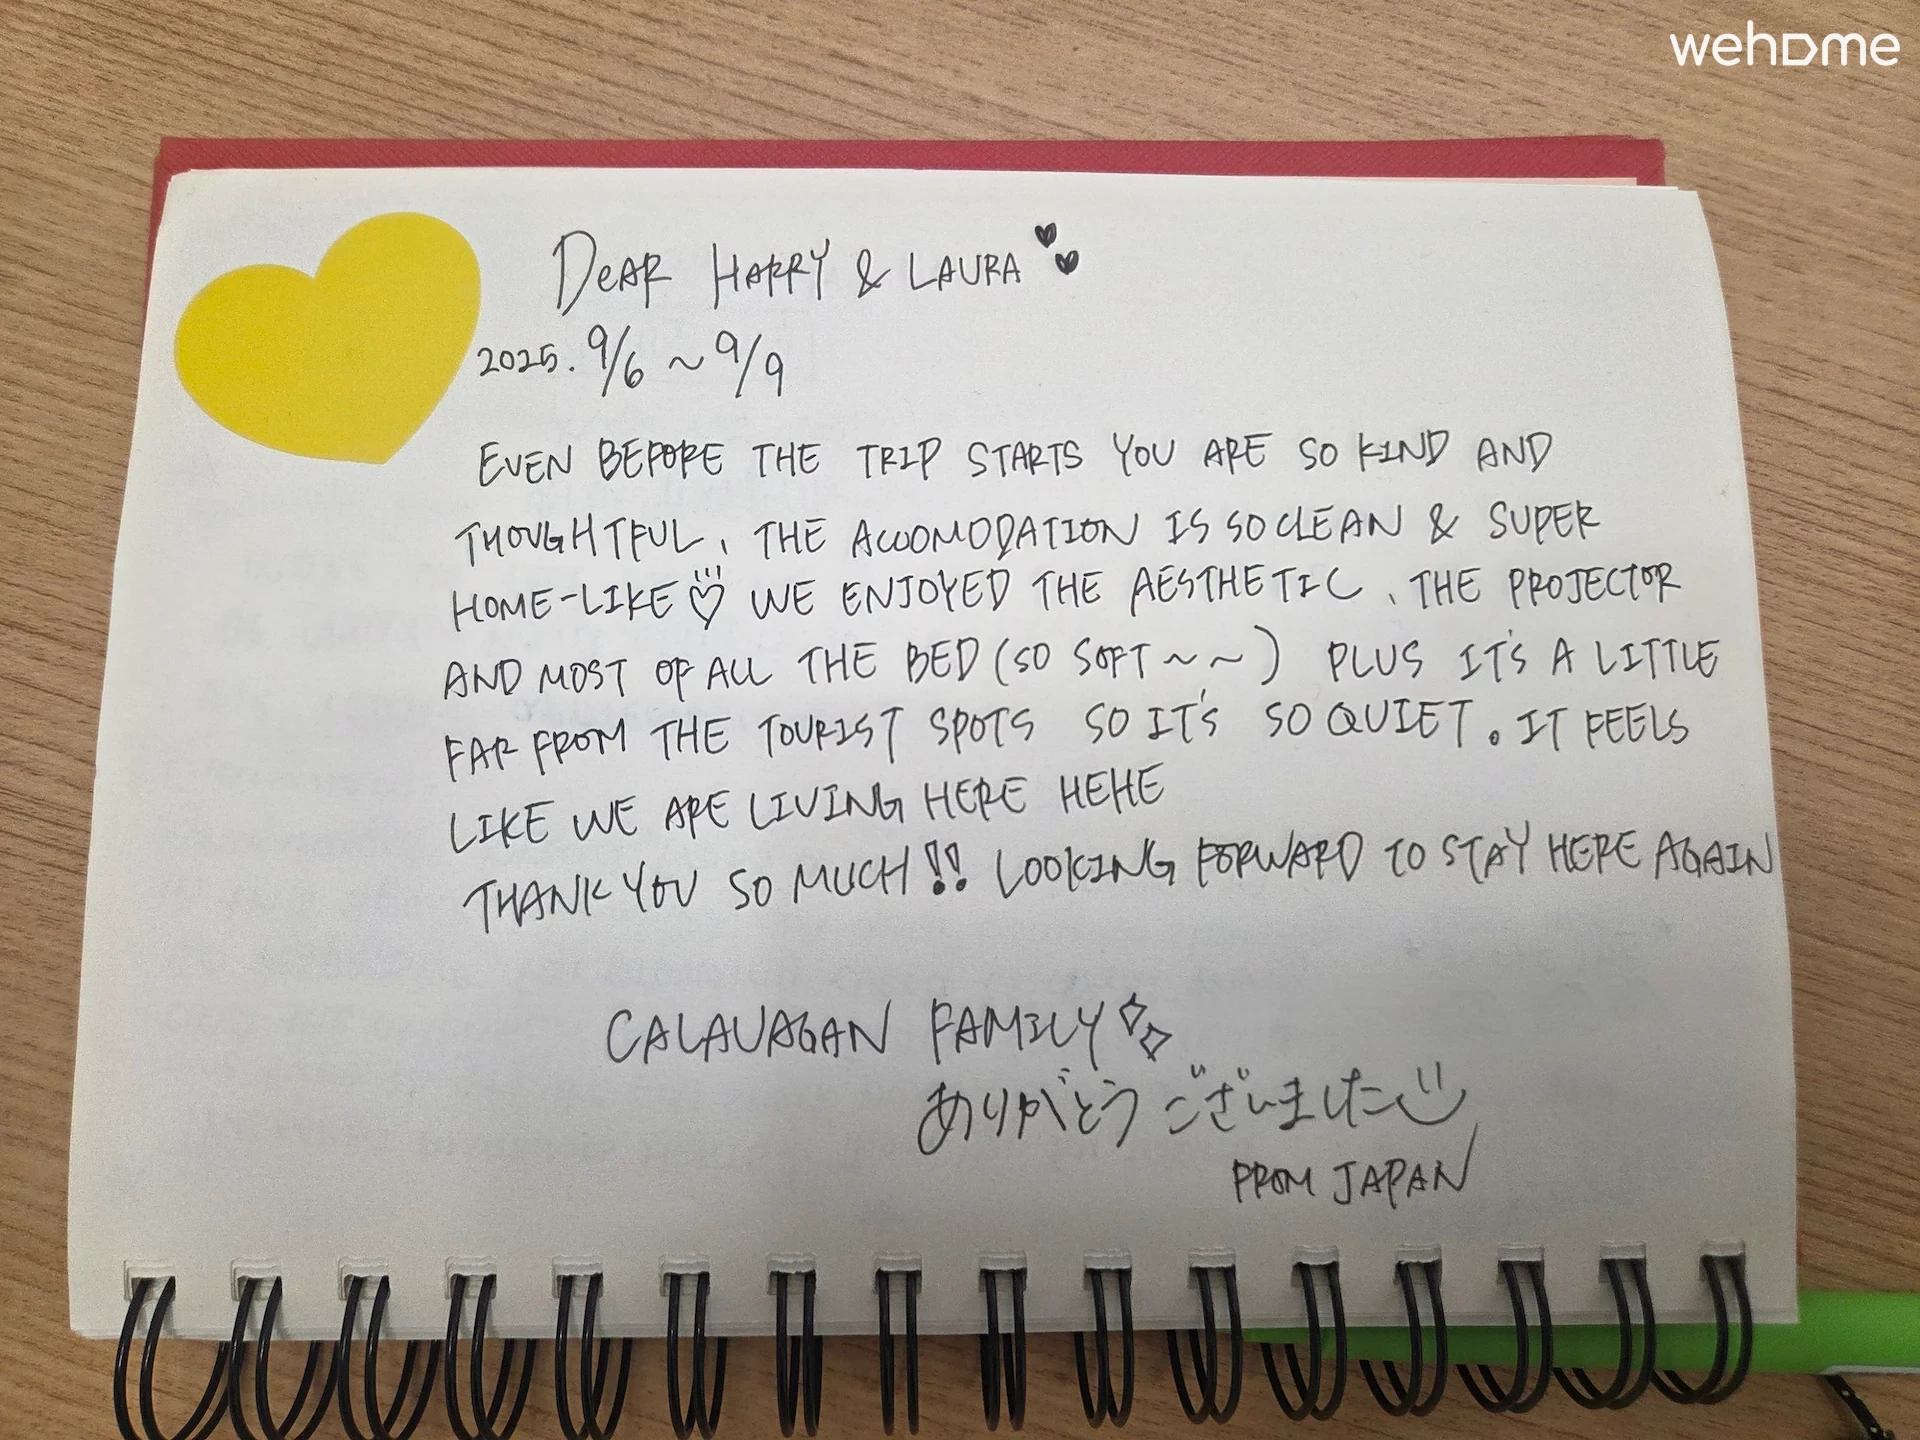 wehome
DeAR HARRY & LAURA
2025. 9/6 ~ 9/9
EVEN BEFORE THE TRIP STARTS YOU ARE SO KIND AND
THOUGHTFUL, THE ACCOMODATION IS SO CLEAN & SUPER
HOME-LIKE♡ WE ENJOYED THE AESTHETIC, THE PROJECTOR
AND MOST OF ALL THE BED (SO SOFT ~ ~ ) PLUS IT'S A LITTLE
FAR FROM THE TOURIST SPOTS SO IT'S SO QUIET. IT FEELS
LIKE WE ARE LIVING HERE HEHE
THANK YOU SO MUCH!! LOOKING FORWARD TO STAY HERE AGAIN
CALAUAGAN FAMILY
ありがとう ございました
FROM JAPAN